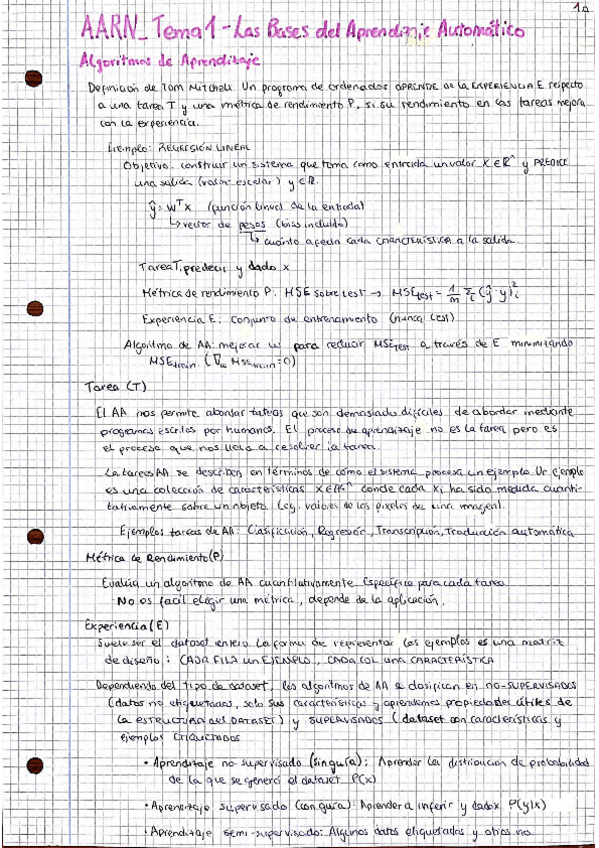 1.
AARN_Tema 1 - Las Bases del Aprendizaje Automático
Algoritmos de Aprenditaje
Definición de Tom Mitchell Un programa de ordenador APRENDE de la EXPERIENCIA E respecto
a una tarea T y una métrica de rendimiento P, si su rendimiento en las tareas mejora
con la experiencia.
Ejemplo: REGRESIÓN LINEAL
Objetivo: construir un sistema que toma como entrada un valor x ∈ ℝⁿ y PREDICE
una salida (valor escalar) y ∈ ℝ.
ŷ = wᵀx (función lineal de la entrada)
↳ vector de pesos (bias incluido)
↳ cuánto afecta cada CARACTERÍSTICA a la salida.
Tarea T: predecir y dado x
Métrica de rendimiento P: MSE sobre test → MSEtest = 1/m Σi (ŷ - y)²i
Experiencia E: Conjunto de entrenamiento (nunca test)
Algoritmo de AA: mejorar w para reducir MSEtest a través de E minimizando
MSEtrain. (∇w MSEtrain = 0)
Tarea (T)
El AA nos permite abordar tareas que son demasiado difíciles de abordar mediante
programas escritos por humanos. El proceso de aprendizaje no es la tarea pero es
el proceso que nos lleva a resolver la tarea.
La tareas AA se describen en términos de cómo el sistema procesa un ejemplo. Un ejemplo
es una colección de características x ∈ ℝⁿ donde cada xi ha sido medida cuanti-
tativamente sobre un objeto (eg. valores de los píxeles de una imagen).
Ejemplos tareas de AA: Clasificación, Regresión, Transcripción, Traducción automática
Métrica de Rendimiento (P)
Evalúa un algoritmo de AA cuantitativamente Específico para cada tarea
No es fácil elegir una métrica, depende de la aplicación.
Experiencia (E)
Suele ser el dataset entero La forma de representar los ejemplos es una matriz
de diseño: CADA FILA un EJEMPLO, CADA COL UNA CARACTERÍSTICA
Dependiendo del tipo de dataset, los algoritmos de AA se clasifican en NO-SUPERVISADOS
(datos no etiquetados, solo sus características y aprendemos propiedades útiles de
la ESTRUCTURA del DATASET) y SUPERVISADOS (dataset con características y
ejemplos ETIQUETADOS
• Aprendizaje no supervisado (sin guía): Aprender la distribución de probabilidad
de la que se generó el dataset P(x)
• Aprendizaje supervisado (con guía): Aprender a inferir y dado x P(y|x)
• Aprenditaje semi-supervisado: Algunos datos etiquetados y otros no.